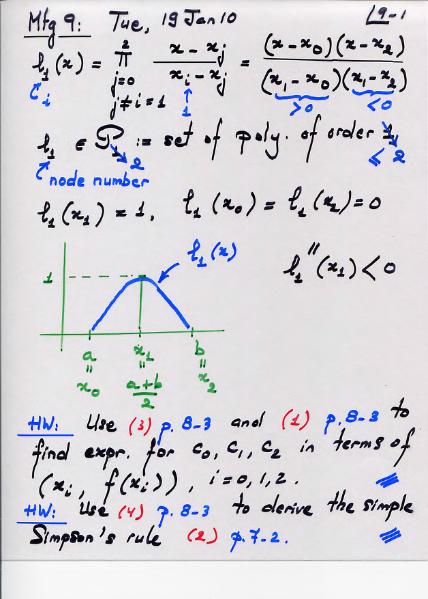 Mtg 9: Tue, 19 Jan 10 19-1
l₁(x) = ∏ (j=0, j≠i=1 to 2) (x - xⱼ)/(xᵢ - xⱼ) = (x-x₀)(x-x₂)/((x₁-x₀)(x₁-x₂))
i 1 >0 <0
l₁ ∈ P₂ := set of poly. of order ≤ 2
node number
l₁(x₁) = 1, l₁(x₀) = l₁(x₂) = 0
l₁(x) l₁''(x₁) < 0
1
a x₁ b
= = =
x₀ (a+b)/2 x₂
HW: Use (3) p. 8-3 and (1) p. 8-3 to
find expr. for c₀, c₁, c₂ in terms of
(xᵢ, f(xᵢ)), i=0,1,2.
HW: Use (4) p. 8-3 to derive the simple
Simpson's rule (2) p. 7-2.